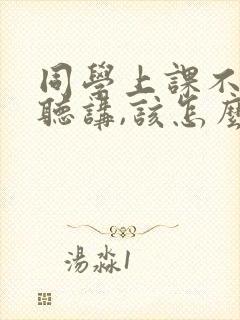 同學上課不
聽講,該怎麼
湯淼1